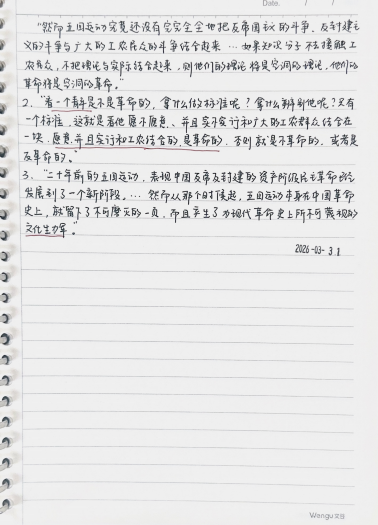 Date.    /    /
"然而五四运动究竟还没有完完全全地把反帝国主义的斗争、反封建主
义的斗争与广大的工农民众的斗争结合起来 … 如果知识分子不去接触工
农民众,不把理论与实际结合起来,则他们的理论将是空洞的理论,他们的
革命将是空洞的革命。"
2、"看一个青年是不是革命的,拿什么做标准呢?拿什么去辨别他呢?只有
一个标准,这就是看他愿不愿意、并且实行不实行和广大的工农群众结合在
一块。愿意并且实行和工农结合的,是革命的,否则就是不革命的,或者是
反革命的。"
3、"二十年前的五四运动,表现中国反帝反封建的资产阶级民主革命已经
发展到了一个新阶段。… 然而从那个时候起,五四运动本身在中国革命
史上,就留下了不可磨灭的一页,而且产生了为现代革命史上所不可蔑视的
文化生力军"。
2026-03-31
Wengu文谷